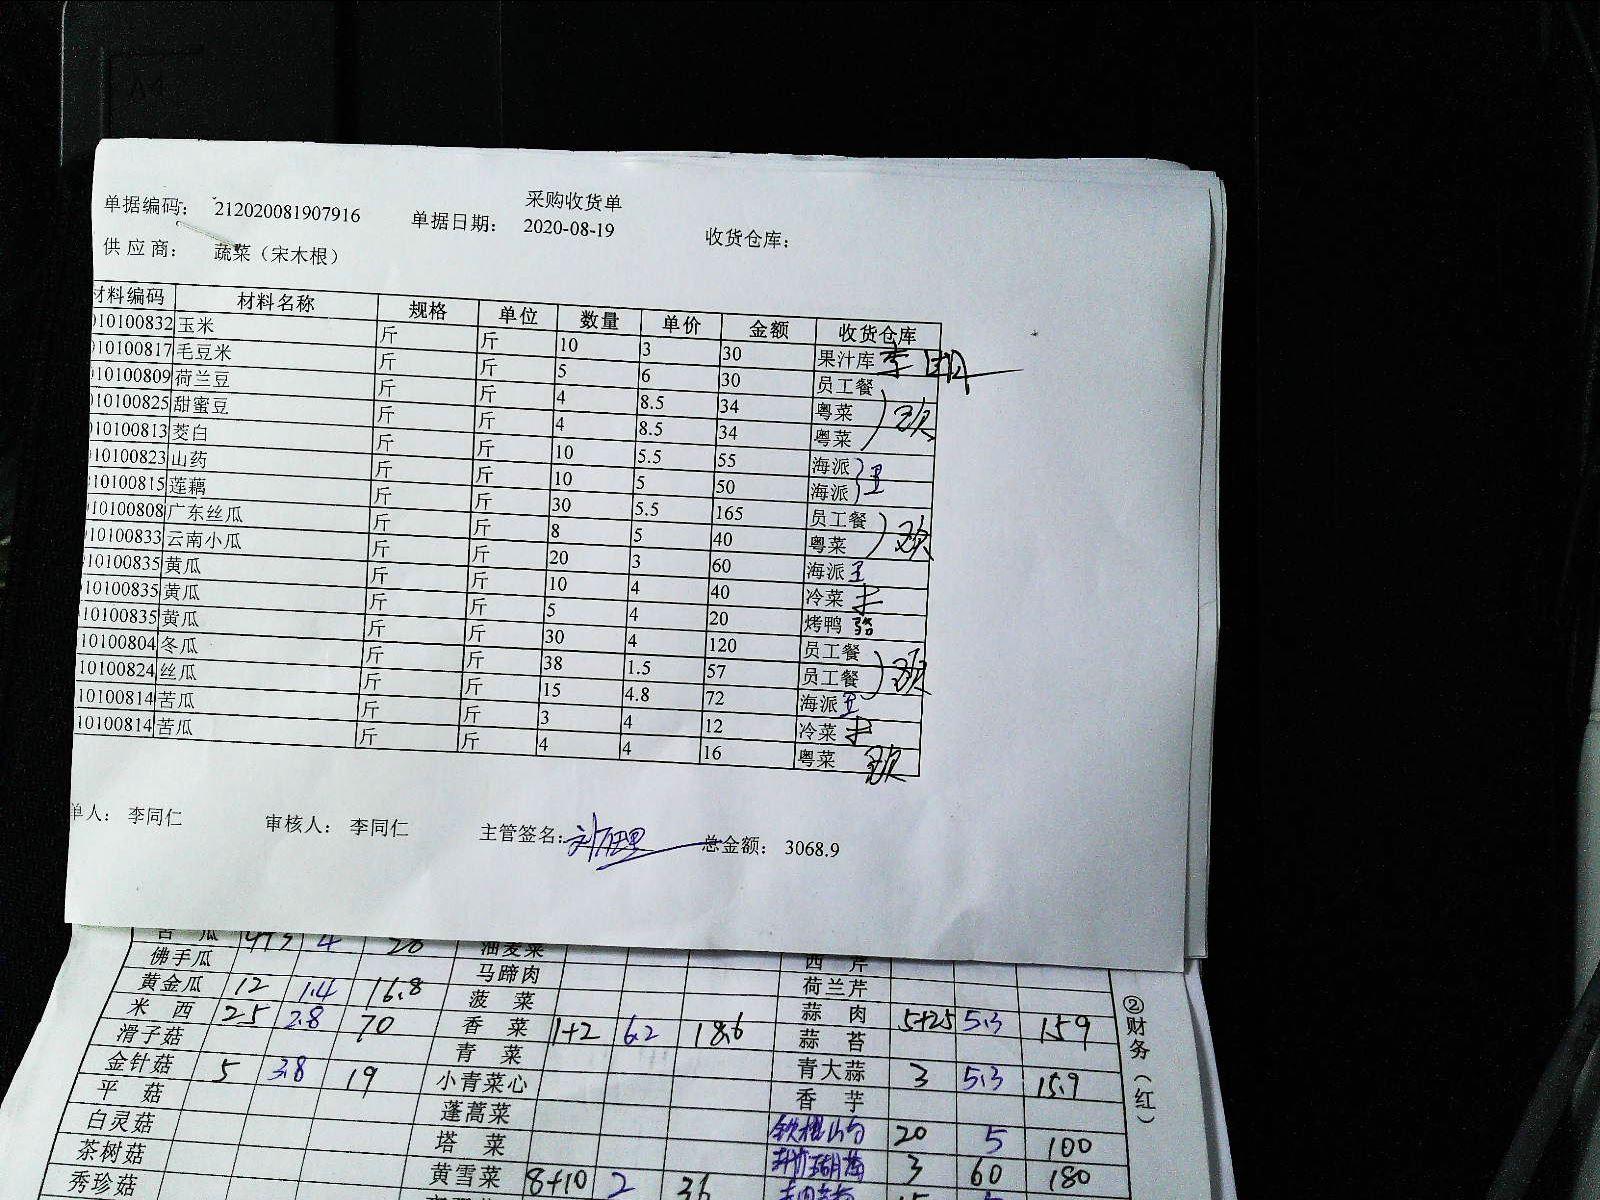 A4
采购收货单
单据编码: 212020081907916 单据日期: 2020-08-19 收货仓库:
供应商: 蔬菜（宋木根）
材料编码 材料名称 规格 单位 数量 单价 金额 收货仓库
10100832 玉米 斤 斤 10 3 30 果汁库
10100817 毛豆米 斤 斤 5 6 30 员工餐
10100809 荷兰豆 斤 斤 4 8.5 34 粤菜
10100825 甜蜜豆 斤 斤 4 8.5 34 粤菜
10100813 茭白 斤 斤 10 5.5 55 海派
10100823 山药 斤 斤 10 5 50 海派
10100815 莲藕 斤 斤 30 5.5 165 员工餐
10100808 广东丝瓜 斤 斤 8 5 40 粤菜
10100833 云南小瓜 斤 斤 20 3 60 海派
10100835 黄瓜 斤 斤 10 4 40 冷菜
10100835 黄瓜 斤 斤 5 4 20 烤鸭
10100835 黄瓜 斤 斤 30 4 120 员工餐
10100804 冬瓜 斤 斤 38 1.5 57 员工餐
10100824 丝瓜 斤 斤 15 4.8 72 海派
10100814 苦瓜 斤 斤 3 4 12 冷菜
10100814 苦瓜 斤 斤 4 4 16 粤菜
单人: 李同仁 审核人: 李同仁 主管签名: 总金额: 3068.9
苦瓜 4 20 油麦菜 西芹
佛手瓜 马蹄肉 荷兰芹
黄金瓜 12 1.4 16.8 菠菜 蒜肉 5+25 5.3 159
米西 25 2.8 70 香菜 1+2 6.2 18.6 蒜苔
滑子菇 青菜 青大蒜 3 5.3 15.9
金针菇 5 3.8 19 小青菜心 香芋
平菇 蓬蒿菜 20 5 100
白灵菇 塔菜 3 60 180
茶树菇 黄雪菜 8+10 2 36
秀珍菇
②财务（红）